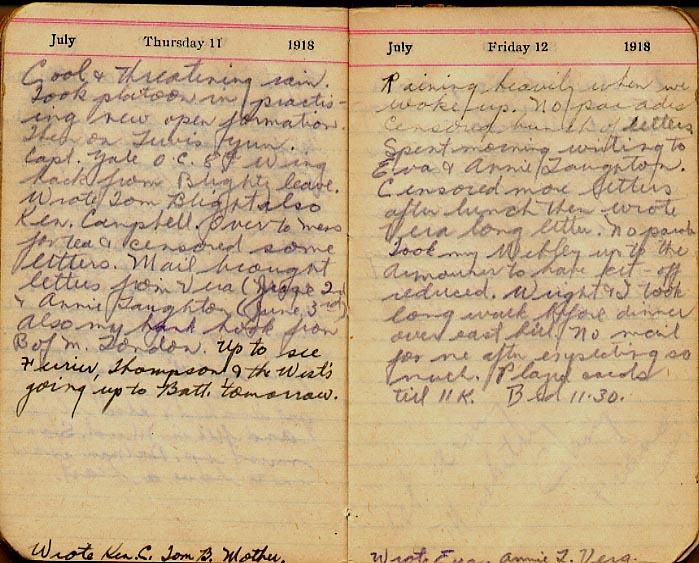 July Thursday 11 1918
Cool & threatening rain.
Took platoon in practis-
ing new open formation.
Then on Lewis gun.
Capt. Yale O.C. E & F Wing
back from Blighty leave.
Wrote Tom Blight also
Ken. Campbell. Over to mess
for tea & censored some
letters. Mail brought
letters from Vera (June 2nd
& Annie Laughton (June 3rd)
also my bank book from
B of M. London. Up to see
Thompson & the West's
going up to Batt. tomorrow.
Wrote Ken. C. Tom B. Mother.
July Friday 12 1918
Raining heavily when we
woke up. No parades
Censored bunch of letters
Spent morning writing to
Eva & Annie Laughton.
Censored more letters
after lunch then wrote
Vera long letter. No parade
Took my Webley up to the
armourer to have
reduced. Wright & I took
long walk before dinner
over east hill. No mail
for me after expecting so
much. Played cards
till 11 K. Bed 11.30.
Wrote Eva, Annie L. Vera.